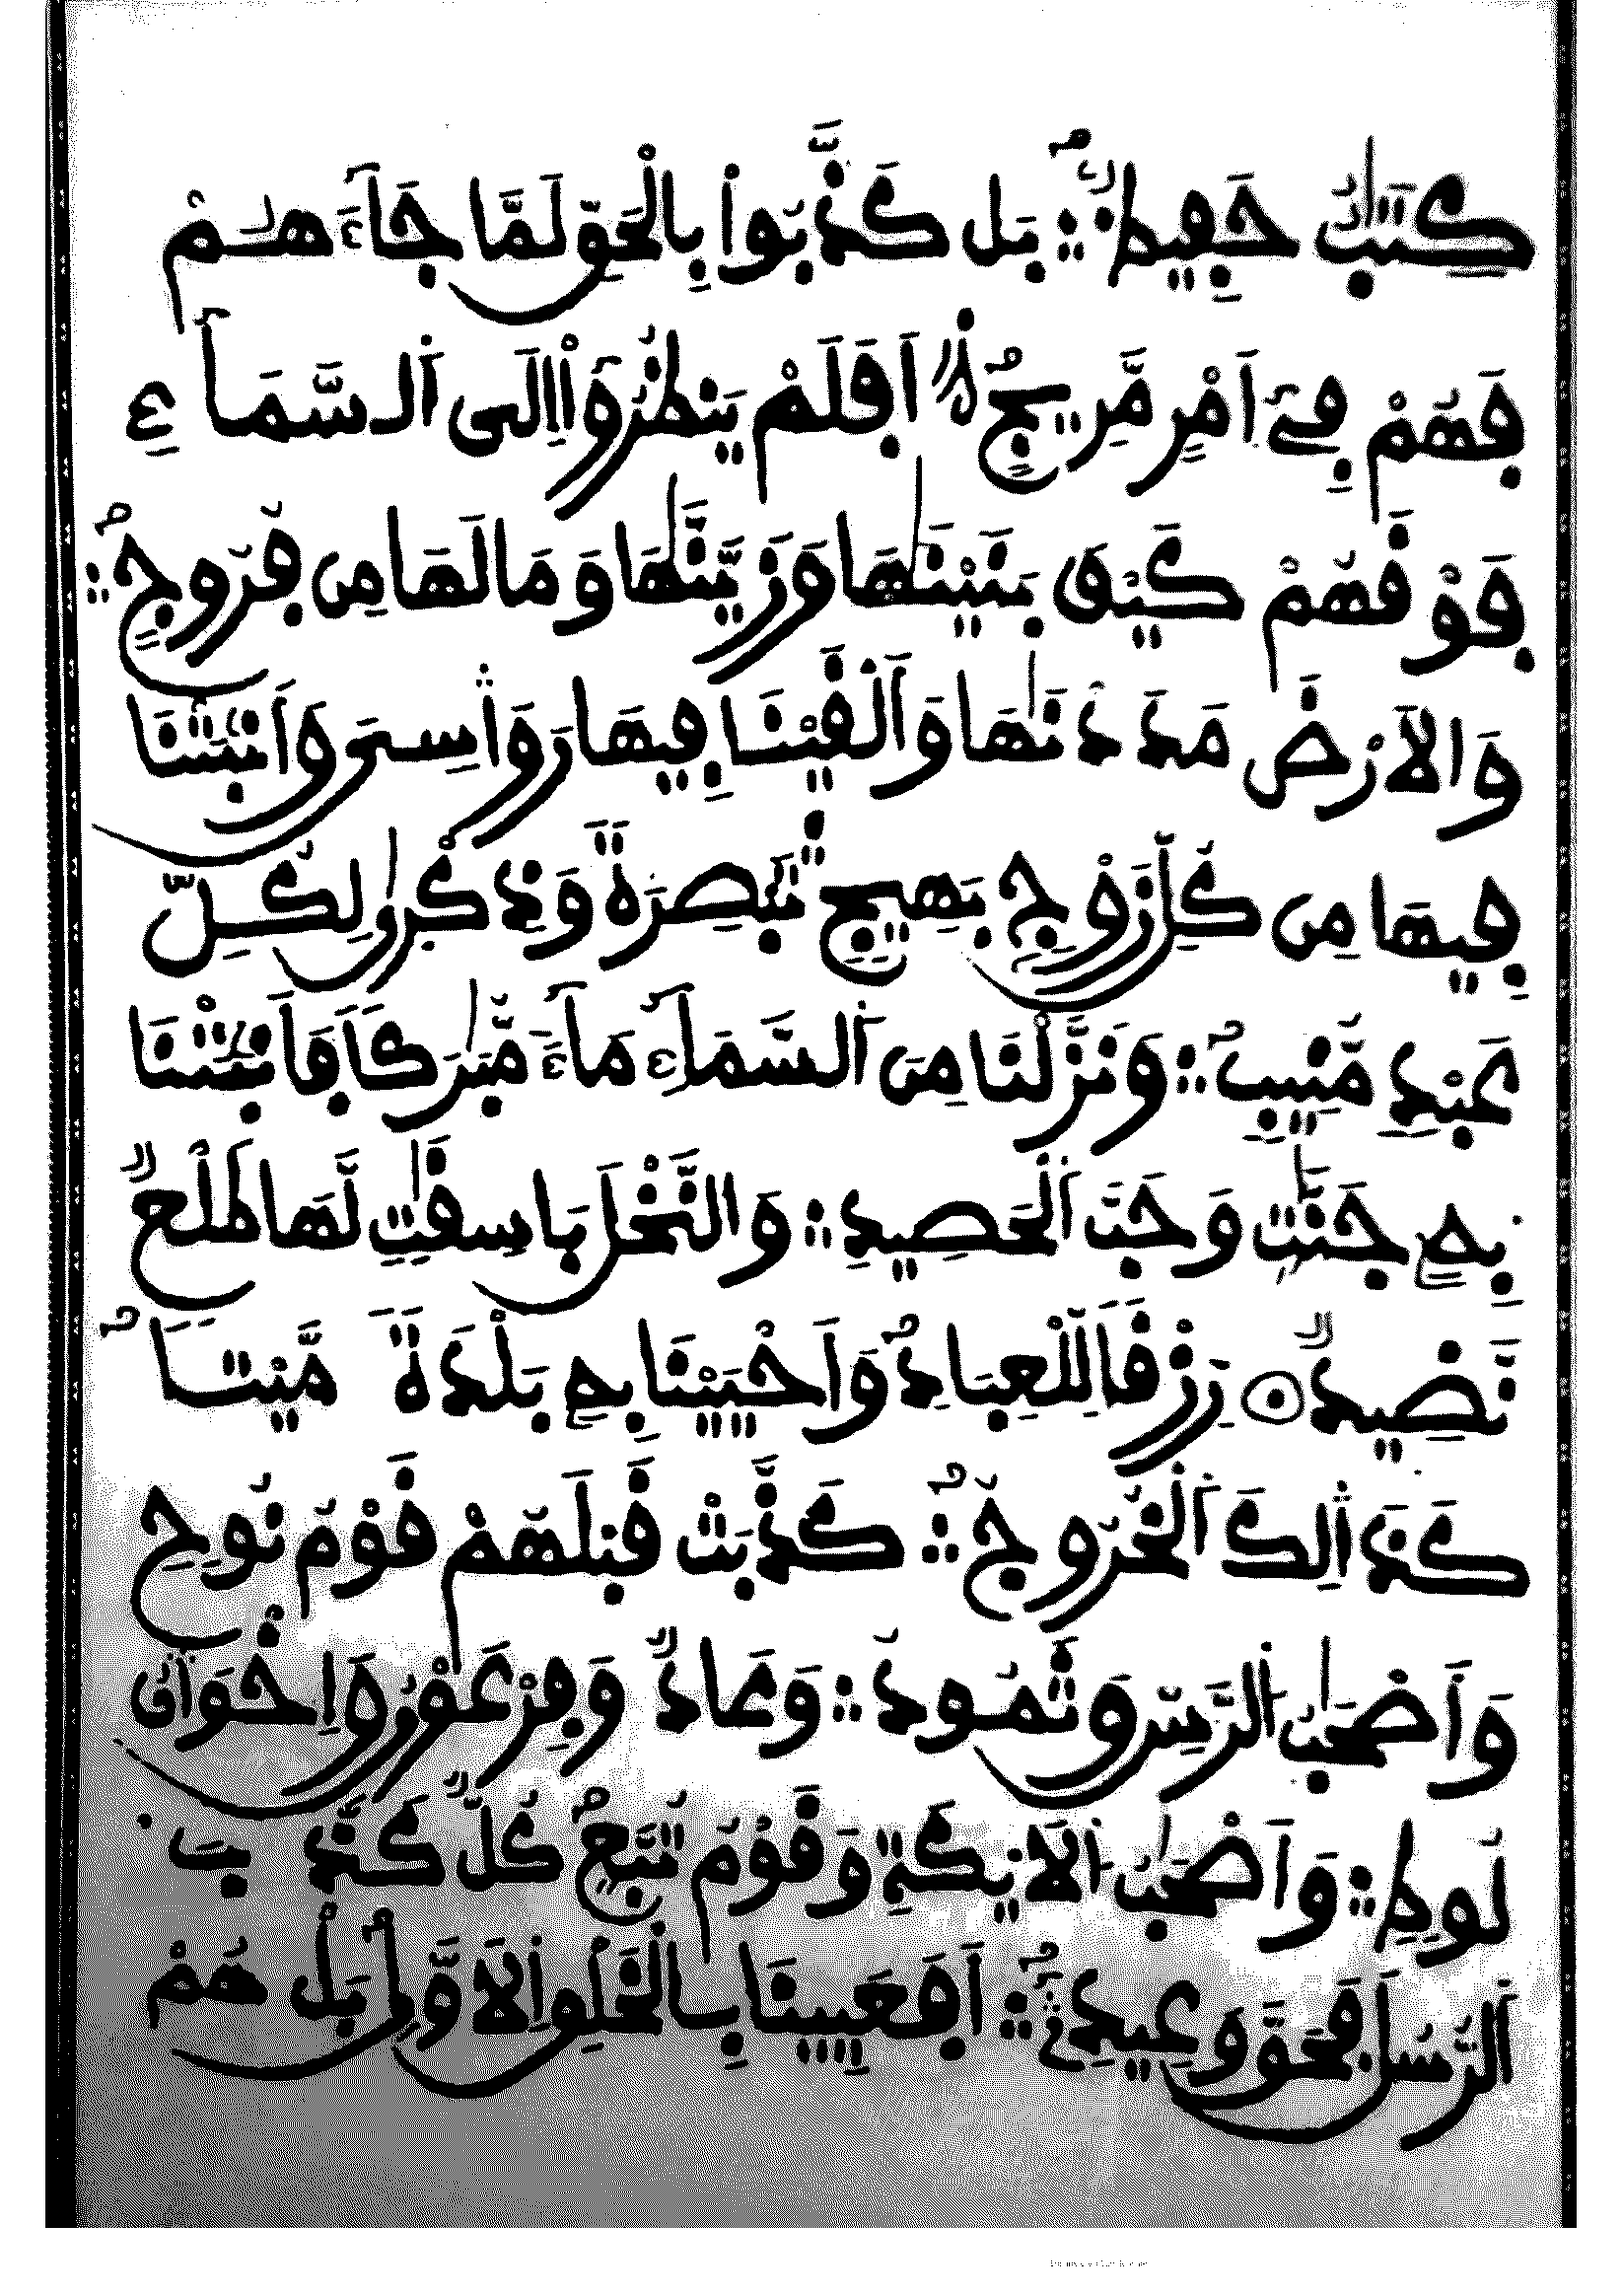 كِتَٰبٌ حَفِيظٌ ؞ بَل كَذَّبُواْ بِالْحَقِّ لَمَّا جَآءَ هُمْ
فَهُمْ فِےٓ أَمْرٍ مَّرِيجٍ أَفَلَمْ يَنظُرُوٓاْ إِلَى اَ۬لسَّمَآءِ
فَوْقَهُمْ كَيْفَ بَنَيْنَٰهَا وَزَيَّنَّٰهَا وَمَا لَهَا مِن فُرُوجٍ ؞
وَالَارْضَ مَدَدْنَٰهَا وَأَلْقَيْنَا فِيهَا رَوَٰسِىَ وَأَنۢبَتْنَا
فِيهَا مِن كُلِّ زَوْجٍ بَهِيجٍ ؞ تَبْصِرَةً وَذِكْر۪ىٰ لِكُلِّ
عَبْدٍ مُّنِيبٍ ؞ وَنَزَّلْنَا مِنَ اَ۬لسَّمَآءِ مَآءً مُّبَٰرَكاً فَأَنۢبَتْنَا
بِهِۦ جَنَّٰتٍ وَحَبَّ اَ۬لْحَصِيدِ ؞ وَالنَّخْلَ بَاسِقَٰتٍ لَّهَا طَلْعٌ
نَّضِيدٌ رِّزْقاً لِّلْعِبَادِ وَأَحْيَيْنَا بِهِۦ بَلْدَةً مَّيْتاً
كَذَٰلِكَ اَ۬لْخُرُوجُ ؞ كَذَّبَتْ قَبْلَهُمْ قَوْمُ نُوحٍ
وَأَصْحَٰبُ اُ۬لرَّسِّ وَثَمُودُ ؞ وَعَادٌ وَفِرْعَوْنُ وَإِخْوَٰنُ
لُوطٍ ؞ وَأَصْحَٰبُ اُ۬لَايْكَةِ وَقَوْمُ تُبَّعٍ كُلٌّ كَذَّبَ
اَ۬لرُّسُلَ فَحَقَّ وَعِيدِ ؞ أَفَعَيِينَا بِالْخَلْقِ اِ۬لَاوَّلِ بَلْ هُمْ